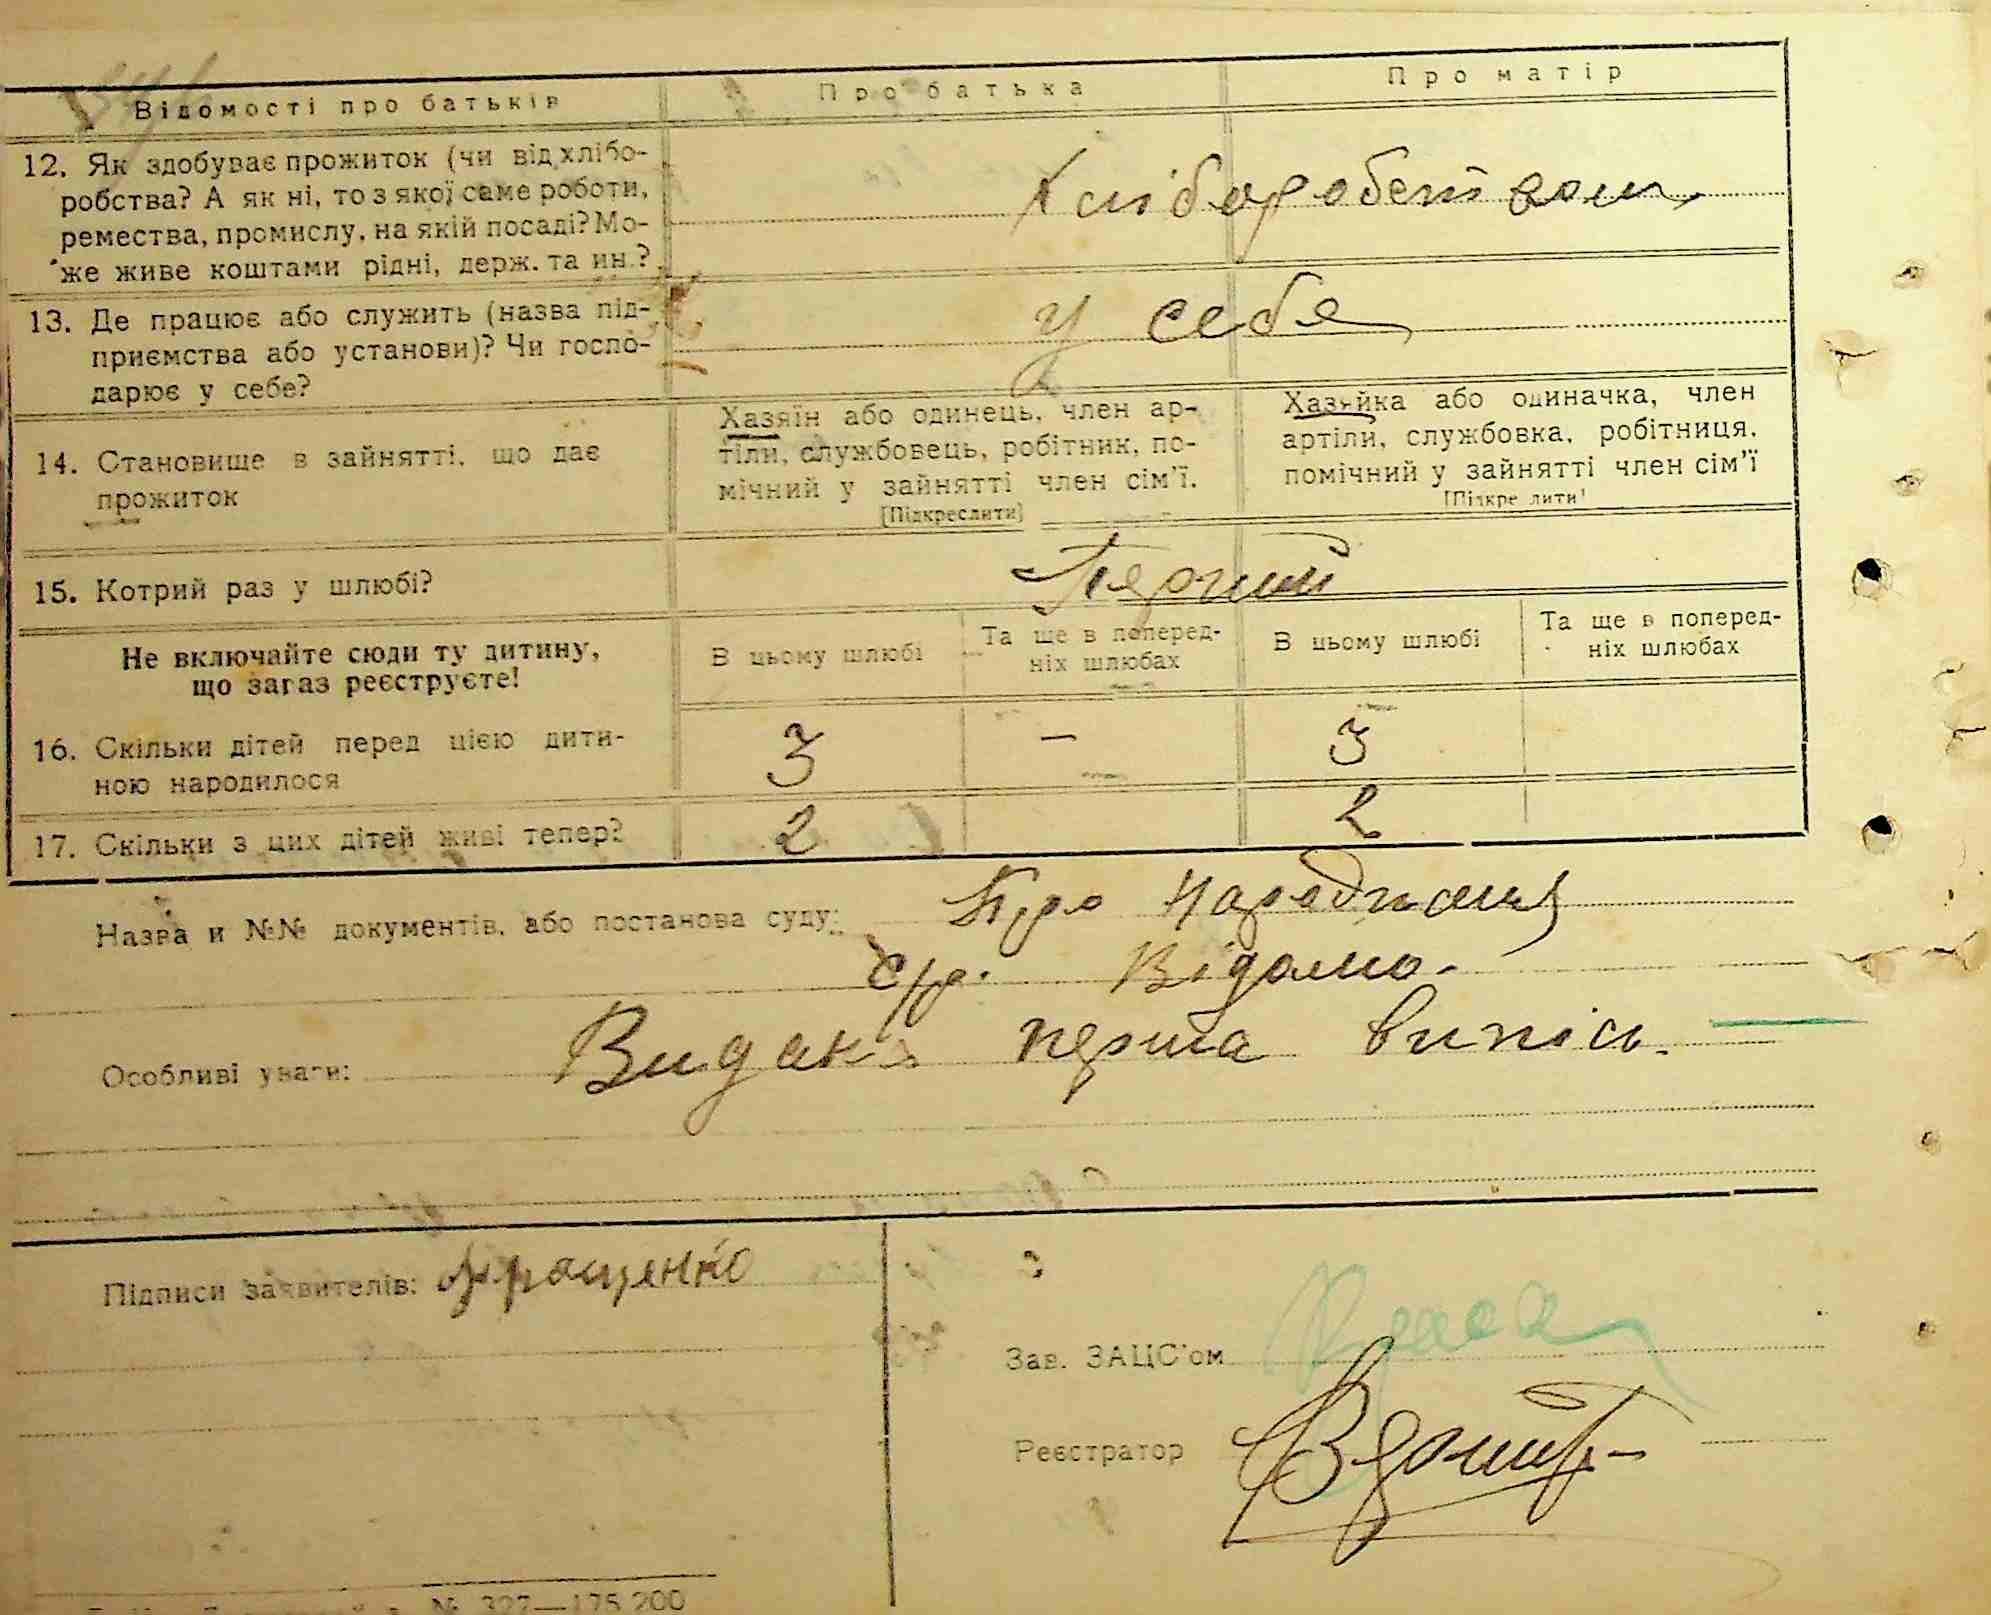 Відомості про батьків
Про батька
Про матір
12. Як здобуває прожиток (чи від хлібо-
робства? А як ні, то з якої саме роботи,
ремества, промислу, на якій посаді? Мо-
же живе коштами рідні, держ. та ин.?
Хліборобством
13. Де працює або служить (назва під-
приємства або установи)? Чи госпо-
дарює у себе?
у себя
14. Становище в зайнятті, що дає
прожиток
Хазяїн або одинець, член ар-
тіли, службовець, робітник, по-
мічний у зайнятті член сім'ї.
[Підкреслити]
Хазяйка або одиначка, член
артіли, службовка, робітниця,
помічний у зайнятті член сім'ї
[Підкреслити]
15. Котрий раз у шлюбі?
Перший
Не включайте сюди ту дитину,
що зараз реєструєте!
В цьому шлюбі
Та ще в поперед-
ніх шлюбах
В цьому шлюбі
Та ще в поперед-
ніх шлюбах
16. Скільки дітей перед цією дити-
ною народилося
3
—
3
17. Скільки з цих дітей живі тепер?
2
2
Назва и №№ документів, або постанова суду:
Про народження
с/р. Відомо.
Особливі уваги:
Видана перша випись.
Підписи заявителів:
Зав. ЗАЦС'ом
Реєстратор
№ 327—175.200